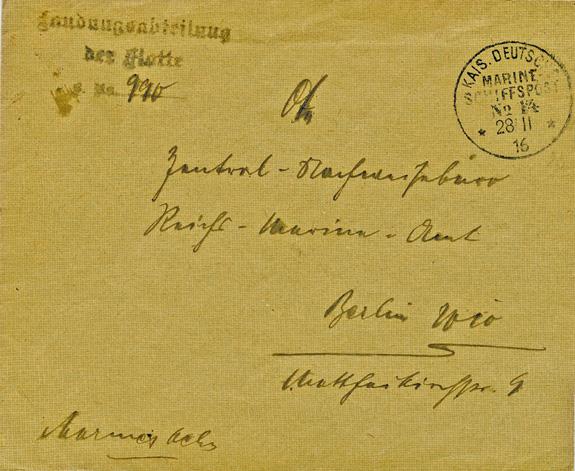 Landungsabteilung
der Flotte
990
KAIS. DEUTSCHE
MARINE-
SCHIFFSPOST
No 14
* 28 II *
16
Zentral-Nachweisebüro
Reichs-Marine-Amt
Berlin W10
Matthäikirchstr. 9
Marinesache